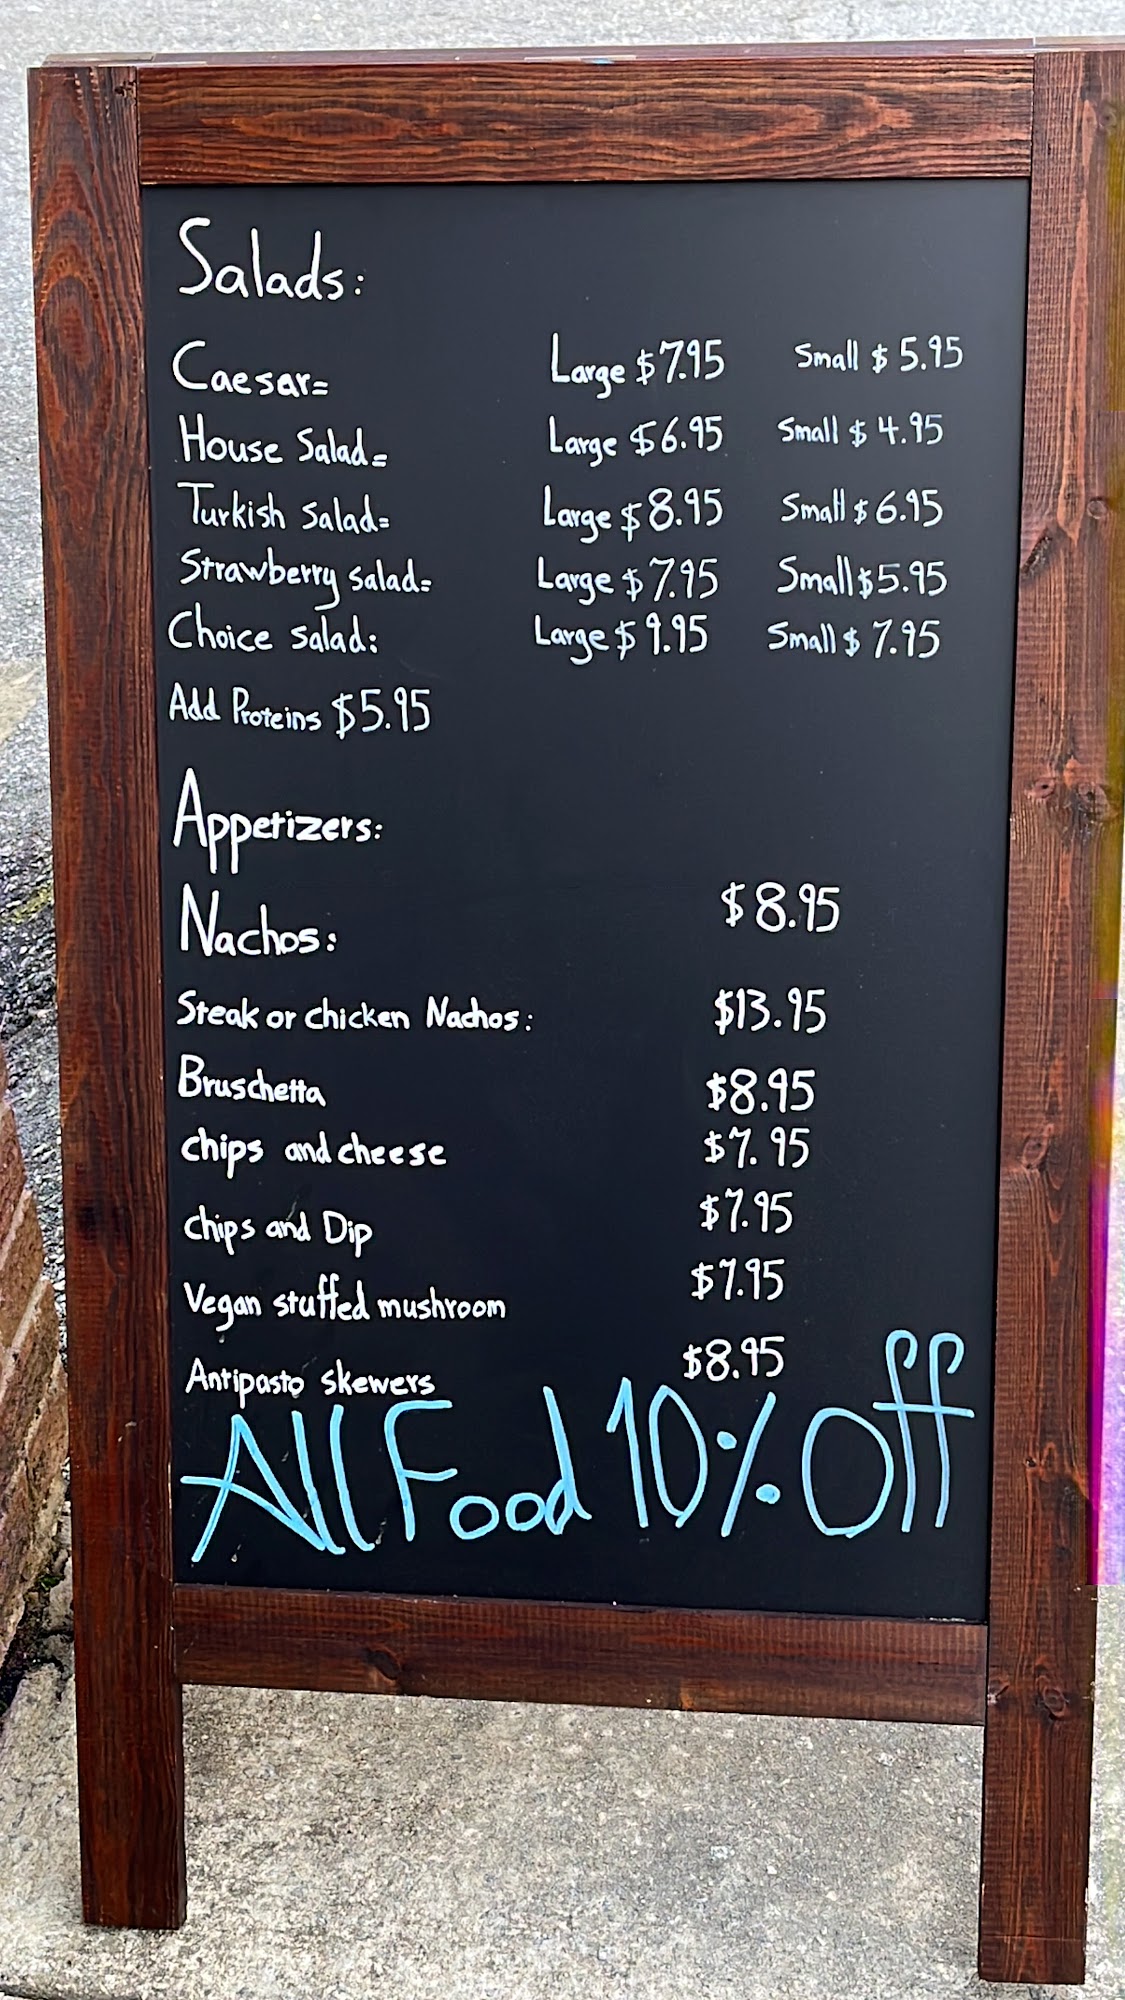 Salads:
Caesar= Large $7.95 Small $5.95
House Salad= Large $6.95 Small $4.95
Turkish Salad= Large $8.95 Small $6.95
Strawberry salad= Large $7.95 Small $5.95
Choice salad: Large $9.95 Small $7.95
Add Proteins $5.95
Appetizers:
Nachos: $8.95
Steak or chicken Nachos: $13.95
Bruschetta $8.95
chips and cheese $7.95
chips and Dip $7.95
Vegan stuffed mushroom $7.95
Antipasto skewers $8.95
All Food 10% Off